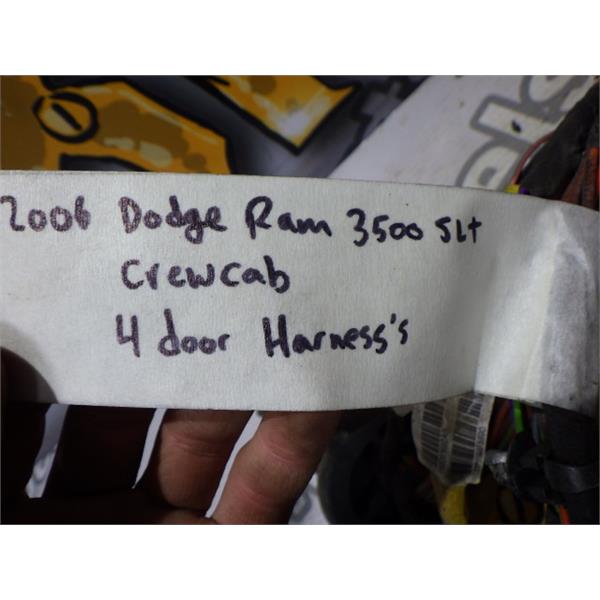 2006 Dodge Ram 3500 SLt
Crewcab
4 door Harness's